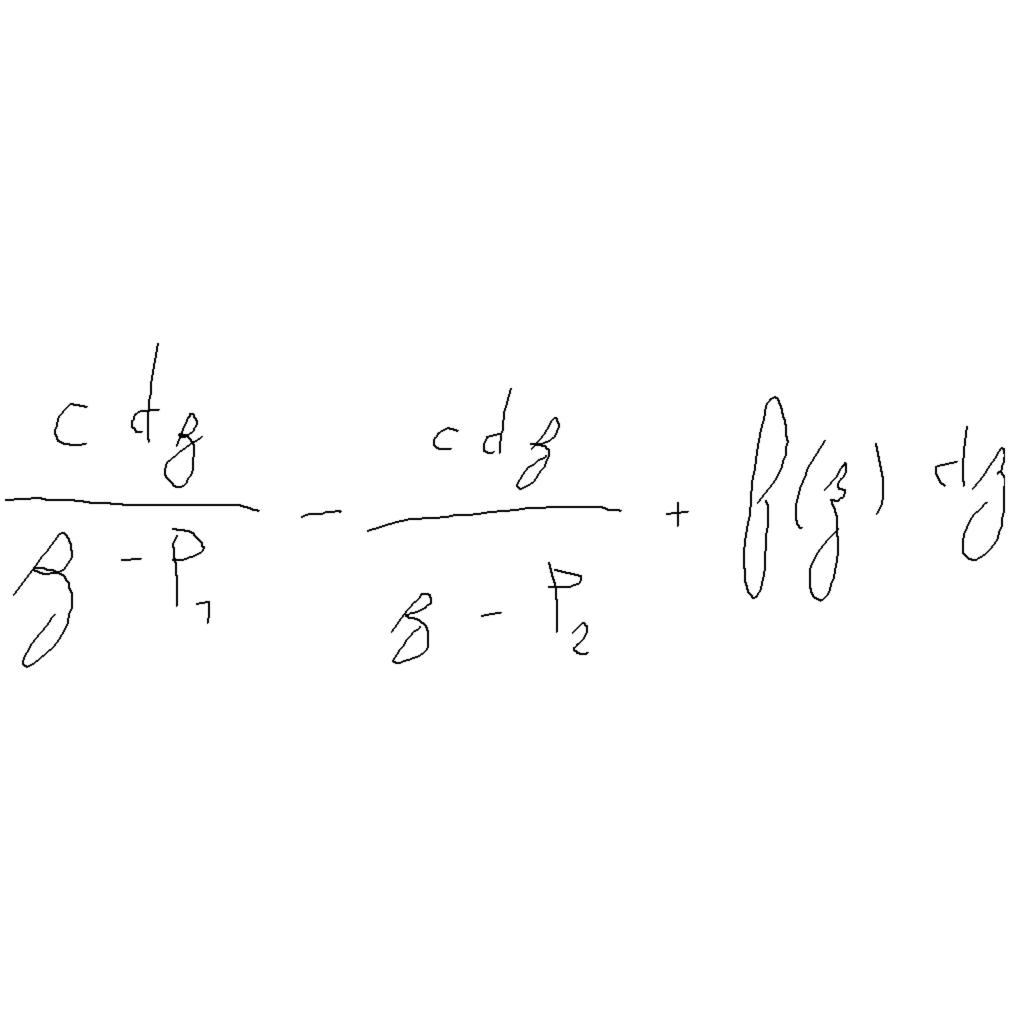 \frac{c dz}{z - P_1} - \frac{c dz}{z - P_2} + f(z) dz